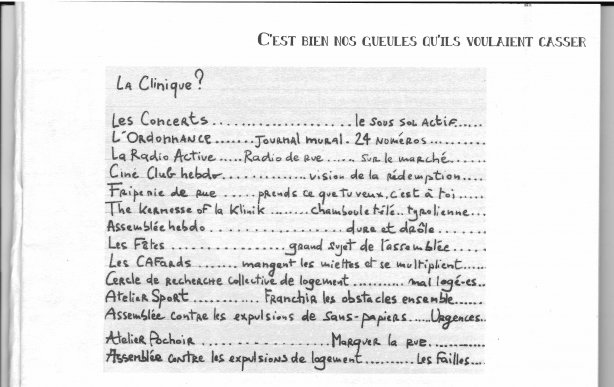 C'EST BIEN NOS GUEULES QU'ILS VOULAIENT CASSER
LA CLINIQUE?
LES CONCERTS.....................le SOUS SOL ACTIF......
L'ORDONNANCE.......JOURNAL MURAL. 24 NUMÉROS..........
La RADIO ACTIVE.....RADIO de RUE...... SUR le MARCHÉ.......
CINÉ CLUB hebdo..............vision de la Rédemption....
FRIPERIE de RUE......prends ce que tu veux, c'est à toi.....
THE KERMESSE OF la KLINIK ........chamboule télé..tyrolienne...
Assemblée hebdo..................dure et drôle........
Les FÊTES .................grand sujet de l'assemblée.....
Les CAFARDS........mangent les miettes et se multiplient.....
CERCLE de RECHERCHE collective de logement...........mal logé-es..
ATELIER SPORT............FRANCHIR les obstacles ensemble......
Assemblée CONTRE les expulsions de SANS-papiers.....URGENCES..
Atelier POCHOIR....................MARQUER la RUE............
Assemblée CONTRE les expulsions de logement..........les Failles...